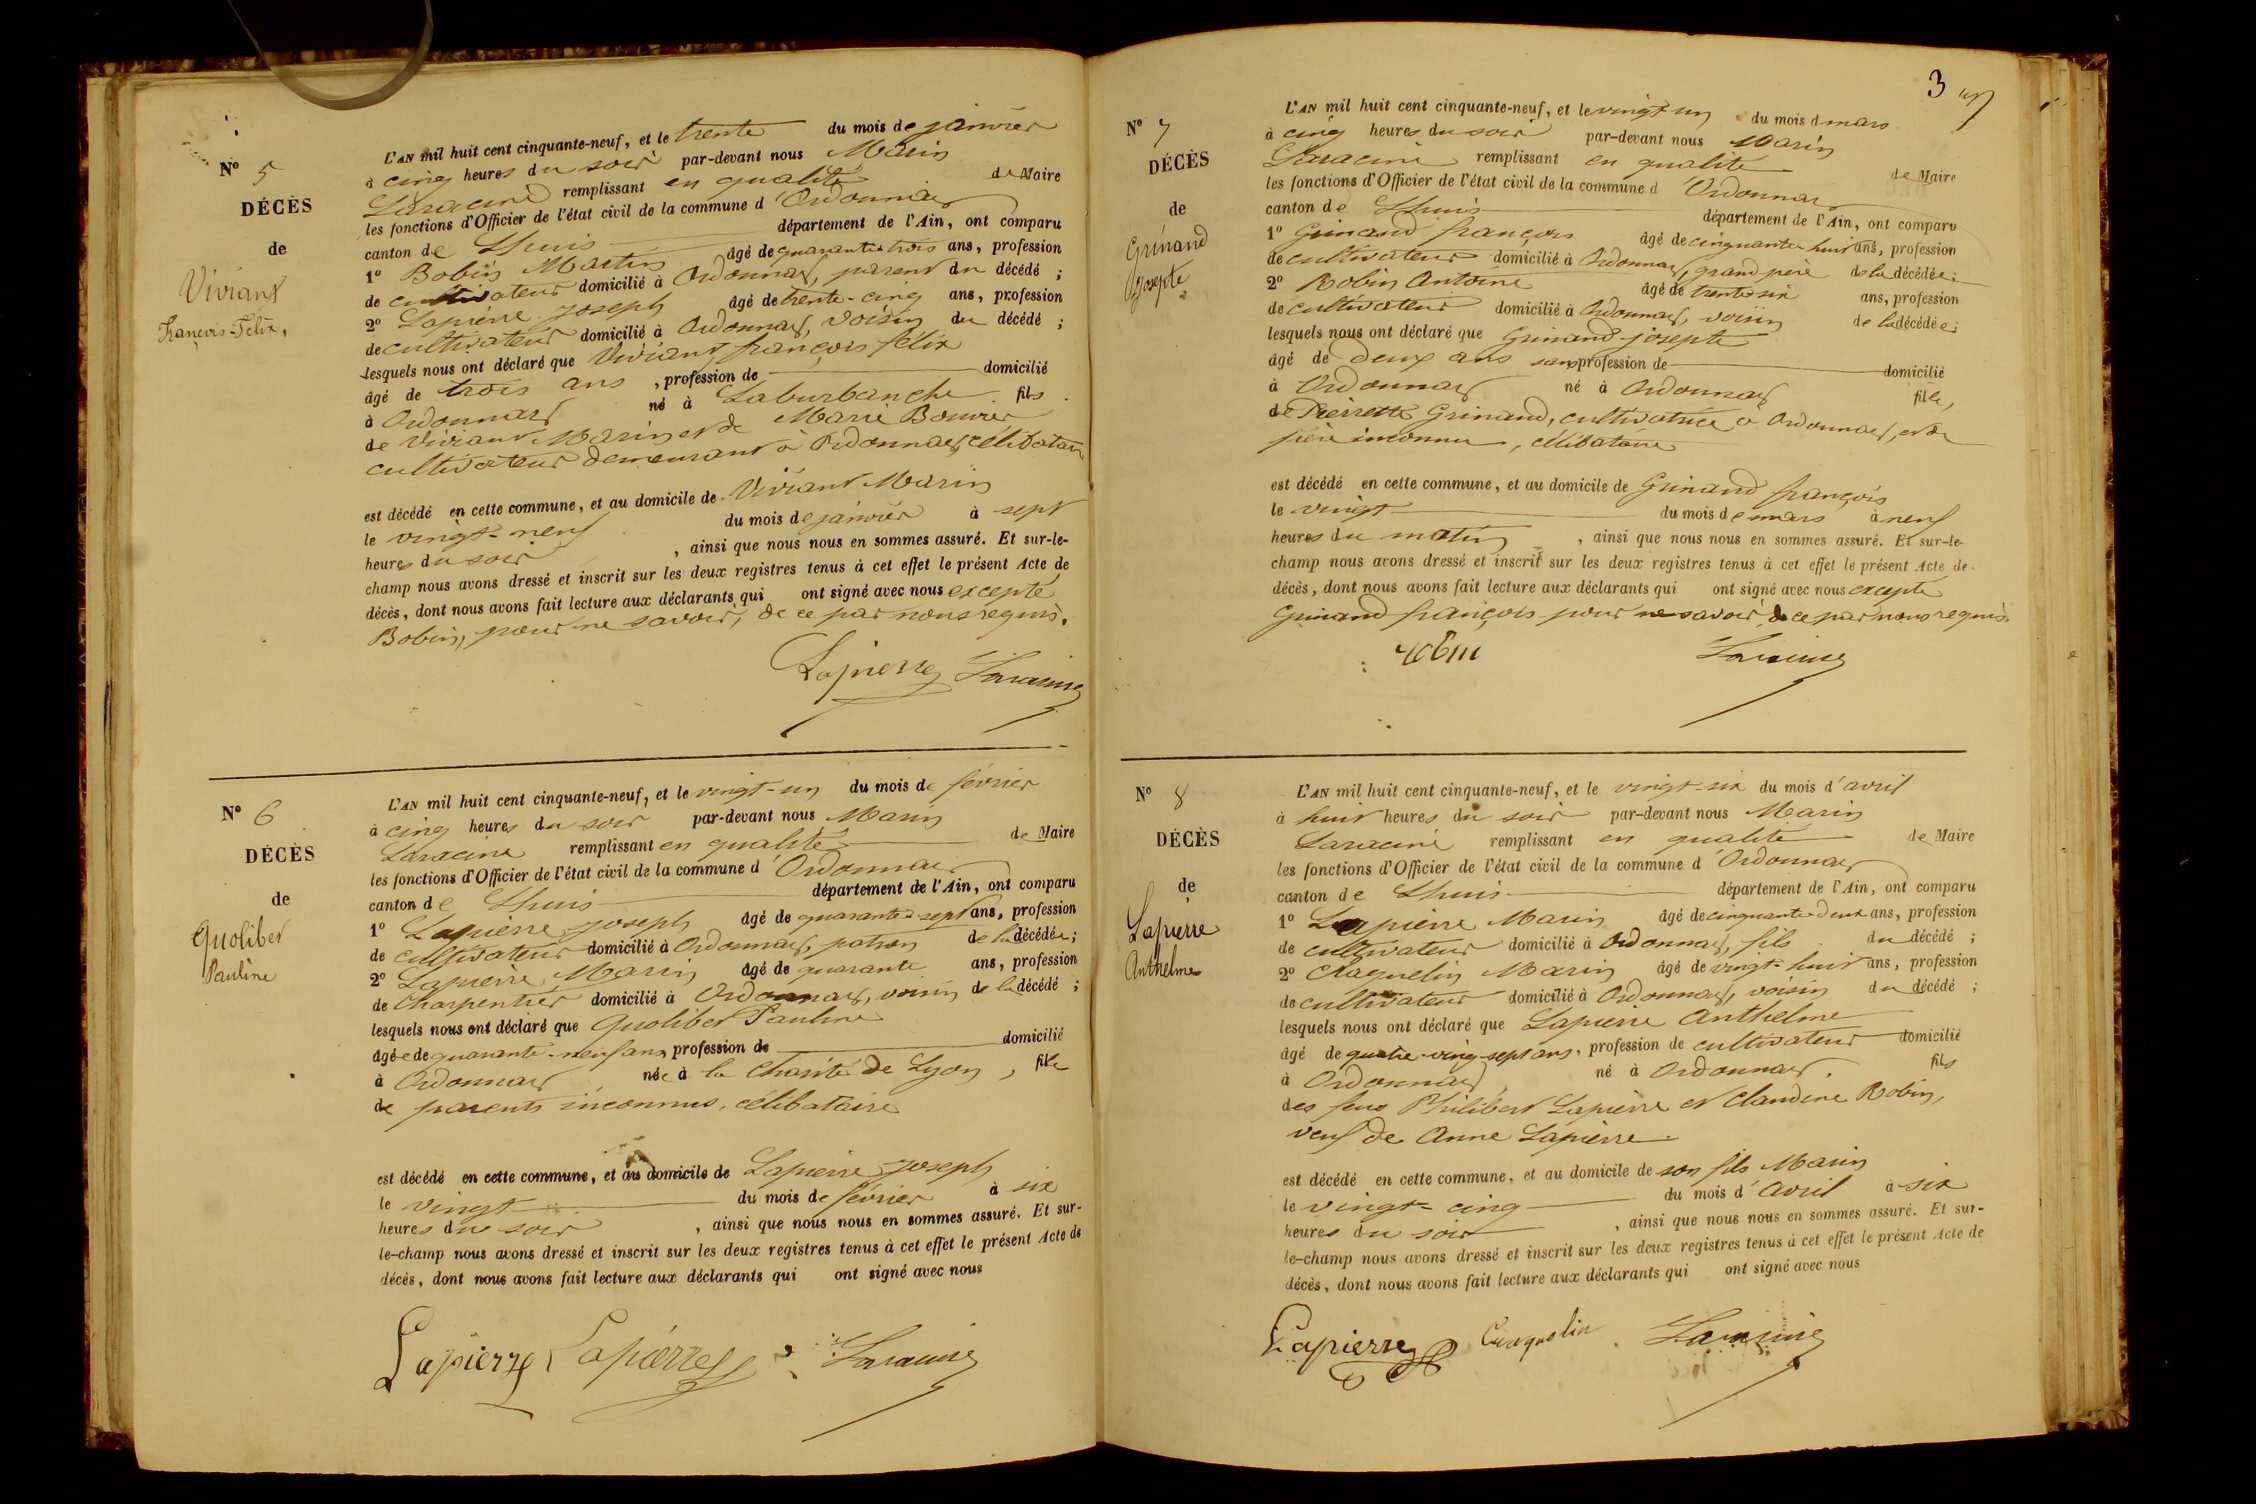 N° 5
DÉCÈS
de
Viviant
François-Félix,
L'AN mil huit cent cinquante-neuf, et le trente du mois de janvier
à cinq heures du soir par-devant nous Marin
Laracine remplissant en qualité de Maire
les fonctions d'Officier de l'état civil de la commune d'Ordonnas
canton de Lhuis département de l'Ain, ont comparu
1° Bobin Martin âgé de quarante trois ans, profession
de cultivateur domicilié à Ordonnas, parent du décédé ;
2° Lapierre Joseph âgé de trente-cinq ans, profession
de cultivateur domicilié à Ordonnas, voisin du décédé ;
lesquels nous ont déclaré que Viviant françois félix
âgé de trois ans , profession de domicilié
à Ordonnas né à Laburbanche fils
de Viviant Marin et de Marie Bouvier
cultivateur demeurant à Ordonnas, célibataire
est décédé en cette commune, et au domicile de Viviant Marin
le vingt-neuf du mois de janvier à sept
heures du soir , ainsi que nous nous en sommes assuré. Et sur-le-
champ nous avons dressé et inscrit sur les deux registres tenus à cet effet le présent Acte de
décès, dont nous avons fait lecture aux déclarants qui ont signé avec nous excepté
Bobin, pour ne savoir, de ce par nous requis.
Lapierre Laracine
N° 6
DÉCÈS
de
Quolibet
Pauline
L'AN mil huit cent cinquante-neuf, et le vingt-un du mois de février
à cinq heures du soir par-devant nous Marin
Laracine remplissant en qualité de Maire
les fonctions d'Officier de l'état civil de la commune d'Ordonnas
canton de Lhuis département de l'Ain, ont comparu
1° Lapierre Joseph âgé de quarante-sept ans, profession
de cultivateur domicilié à Ordonnas, patron de la décédée ;
2° Lapierre Marin âgé de quarante ans, profession
de Charpentier domicilié à Ordonnas, voisin de la décédé ;
lesquels nous ont déclaré que Quolibet Pauline
âgée de quarante-neuf ans, profession de domicilié
à Ordonnas née à la Charité de Lyon, fille
de parents inconnus, célibataire
est décédé en cette commune, et au domicile de Lapierre Joseph
le vingt du mois de février à six
heures du soir , ainsi que nous nous en sommes assuré. Et sur-
le-champ nous avons dressé et inscrit sur les deux registres tenus à cet effet le présent Acte de
décès, dont nous avons fait lecture aux déclarants qui ont signé avec nous
Lapierre Lapierre Laracine
3
N° 7
DÉCÈS
de
Grinand
Josepte
L'AN mil huit cent cinquante-neuf, et le vingt un du mois d mars
à cinq heures du soir par-devant nous Marin
Laracine remplissant en qualité de Maire
les fonctions d'Officier de l'état civil de la commune d Ordonnas
canton de Lhuis département de l'Ain, ont comparu
1° Grinand françois âgé de cinquante huit ans, profession
de cultivateur domicilié à Ordonnas, grand père de la décédée ;
2° Robin Antoine âgé de trente six ans, profession
de cultivateur domicilié à Ordonnas, voisin de la décédée ;
lesquels nous ont déclaré que Grinand josepte
âgé de deux ans sans profession de domicilié
à Ordonnas né à Ordonnas fille,
de Pierrette Grinand, cultivatrice à Ordonnas, et de
père inconnu, célibataire
est décédé en cette commune, et au domicile de Grinand françois
le vingt du mois de mars à neuf
heures du matin , ainsi que nous nous en sommes assuré. Et sur-le-
champ nous avons dressé et inscrit sur les deux registres tenus à cet effet le présent Acte de
décès, dont nous avons fait lecture aux déclarants qui ont signé avec nous excepté
Grinand françois pour ne savoir, de ce par nous requis.
robin Laracine
N° 8
DÉCÈS
de
Lapierre
Anthelme
L'AN mil huit cent cinquante-neuf, et le vingt-six du mois d'avril
à huit heures du soir par-devant nous Marin
Laracine remplissant en qualité de Maire
les fonctions d'Officier de l'état civil de la commune d'Ordonnas
canton de Lhuis département de l'Ain, ont comparu
1° Lapierre Marin âgé de cinquante-deux ans, profession
de cultivateur domicilié à Ordonnas, fils du décédé ;
2° Chaquelin Marin âgé de vingt-huit ans, profession
de cultivateur domicilié à Ordonnas, voisin du décédé ;
lesquels nous ont déclaré que Lapierre Anthelme
âgé de quatre-ving-sept ans, profession de cultivateur domicilié
à Ordonnas, né à Ordonnas, fils
des feus Philibert Lapierre et Claudine Robin,
veuf de Anne Lapierre.
est décédé en cette commune, et au domicile de son fils Marin
le vingt-cinq du mois d'avril à six
heures du soir , ainsi que nous nous en sommes assuré. Et sur-
le-champ nous avons dressé et inscrit sur les deux registres tenus à cet effet le présent Acte de
décès, dont nous avons fait lecture aux déclarants qui ont signé avec nous
Lapierre Laracine